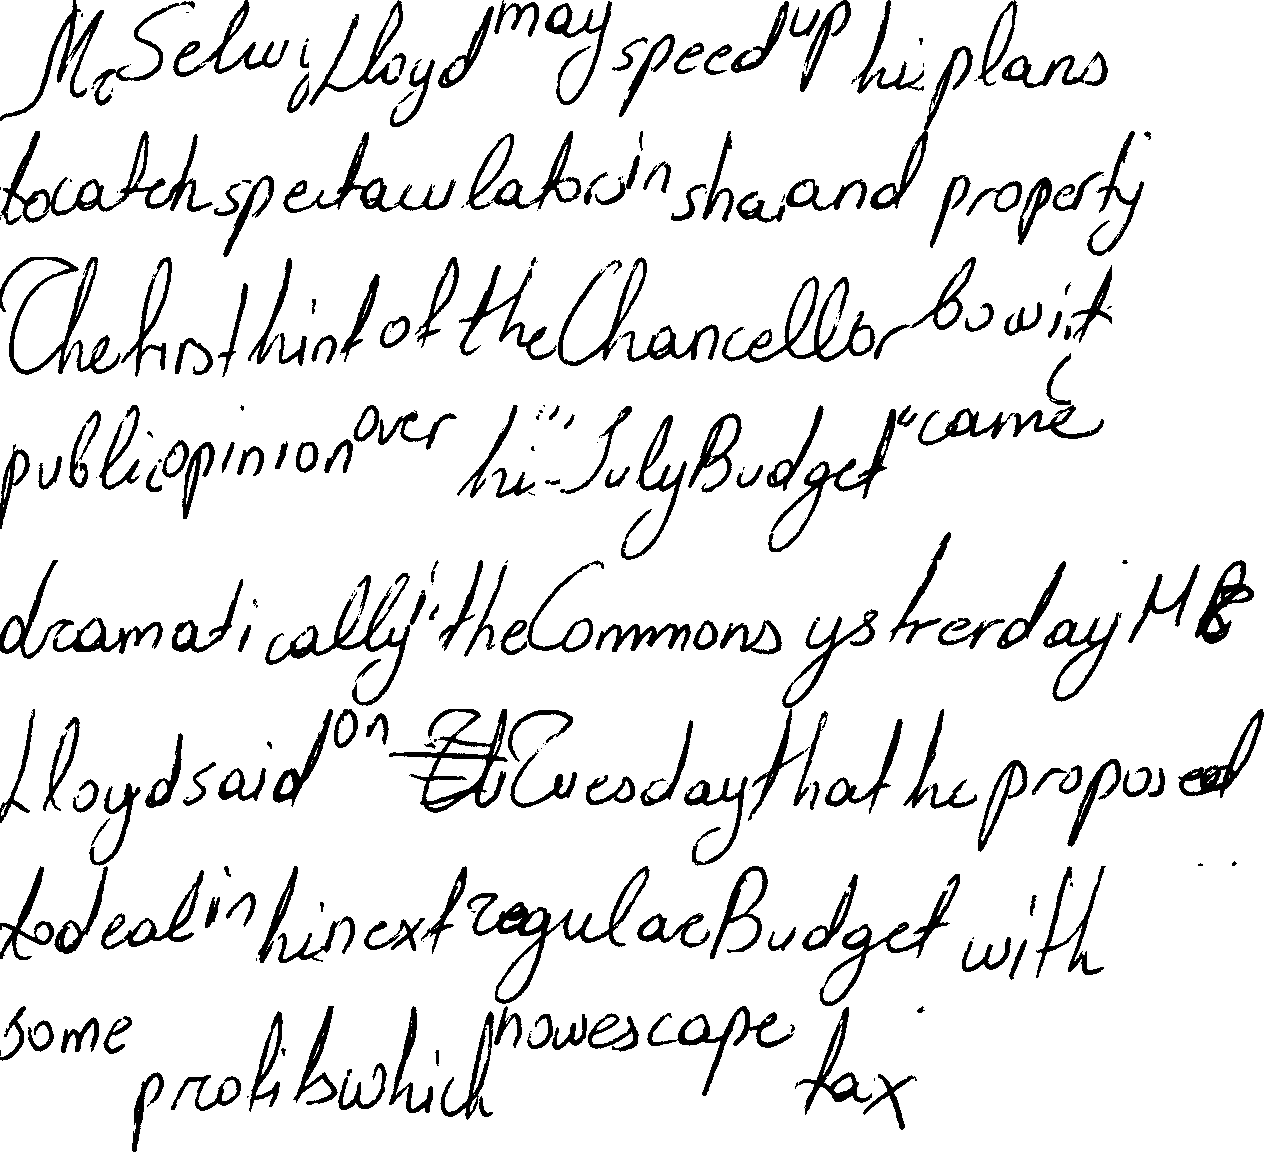 Mr Selwy Lloyd may speed up hi plans
to catch spectaculators in sha, and property
The first hint of the Chancellor bowint
public opinion over hi "July Budget" came
dramatically the Commons ysterday Mr
Lloyd said on Tuesday that he proposed
to deal in hi next regular Budget with
some profits which now escape tax